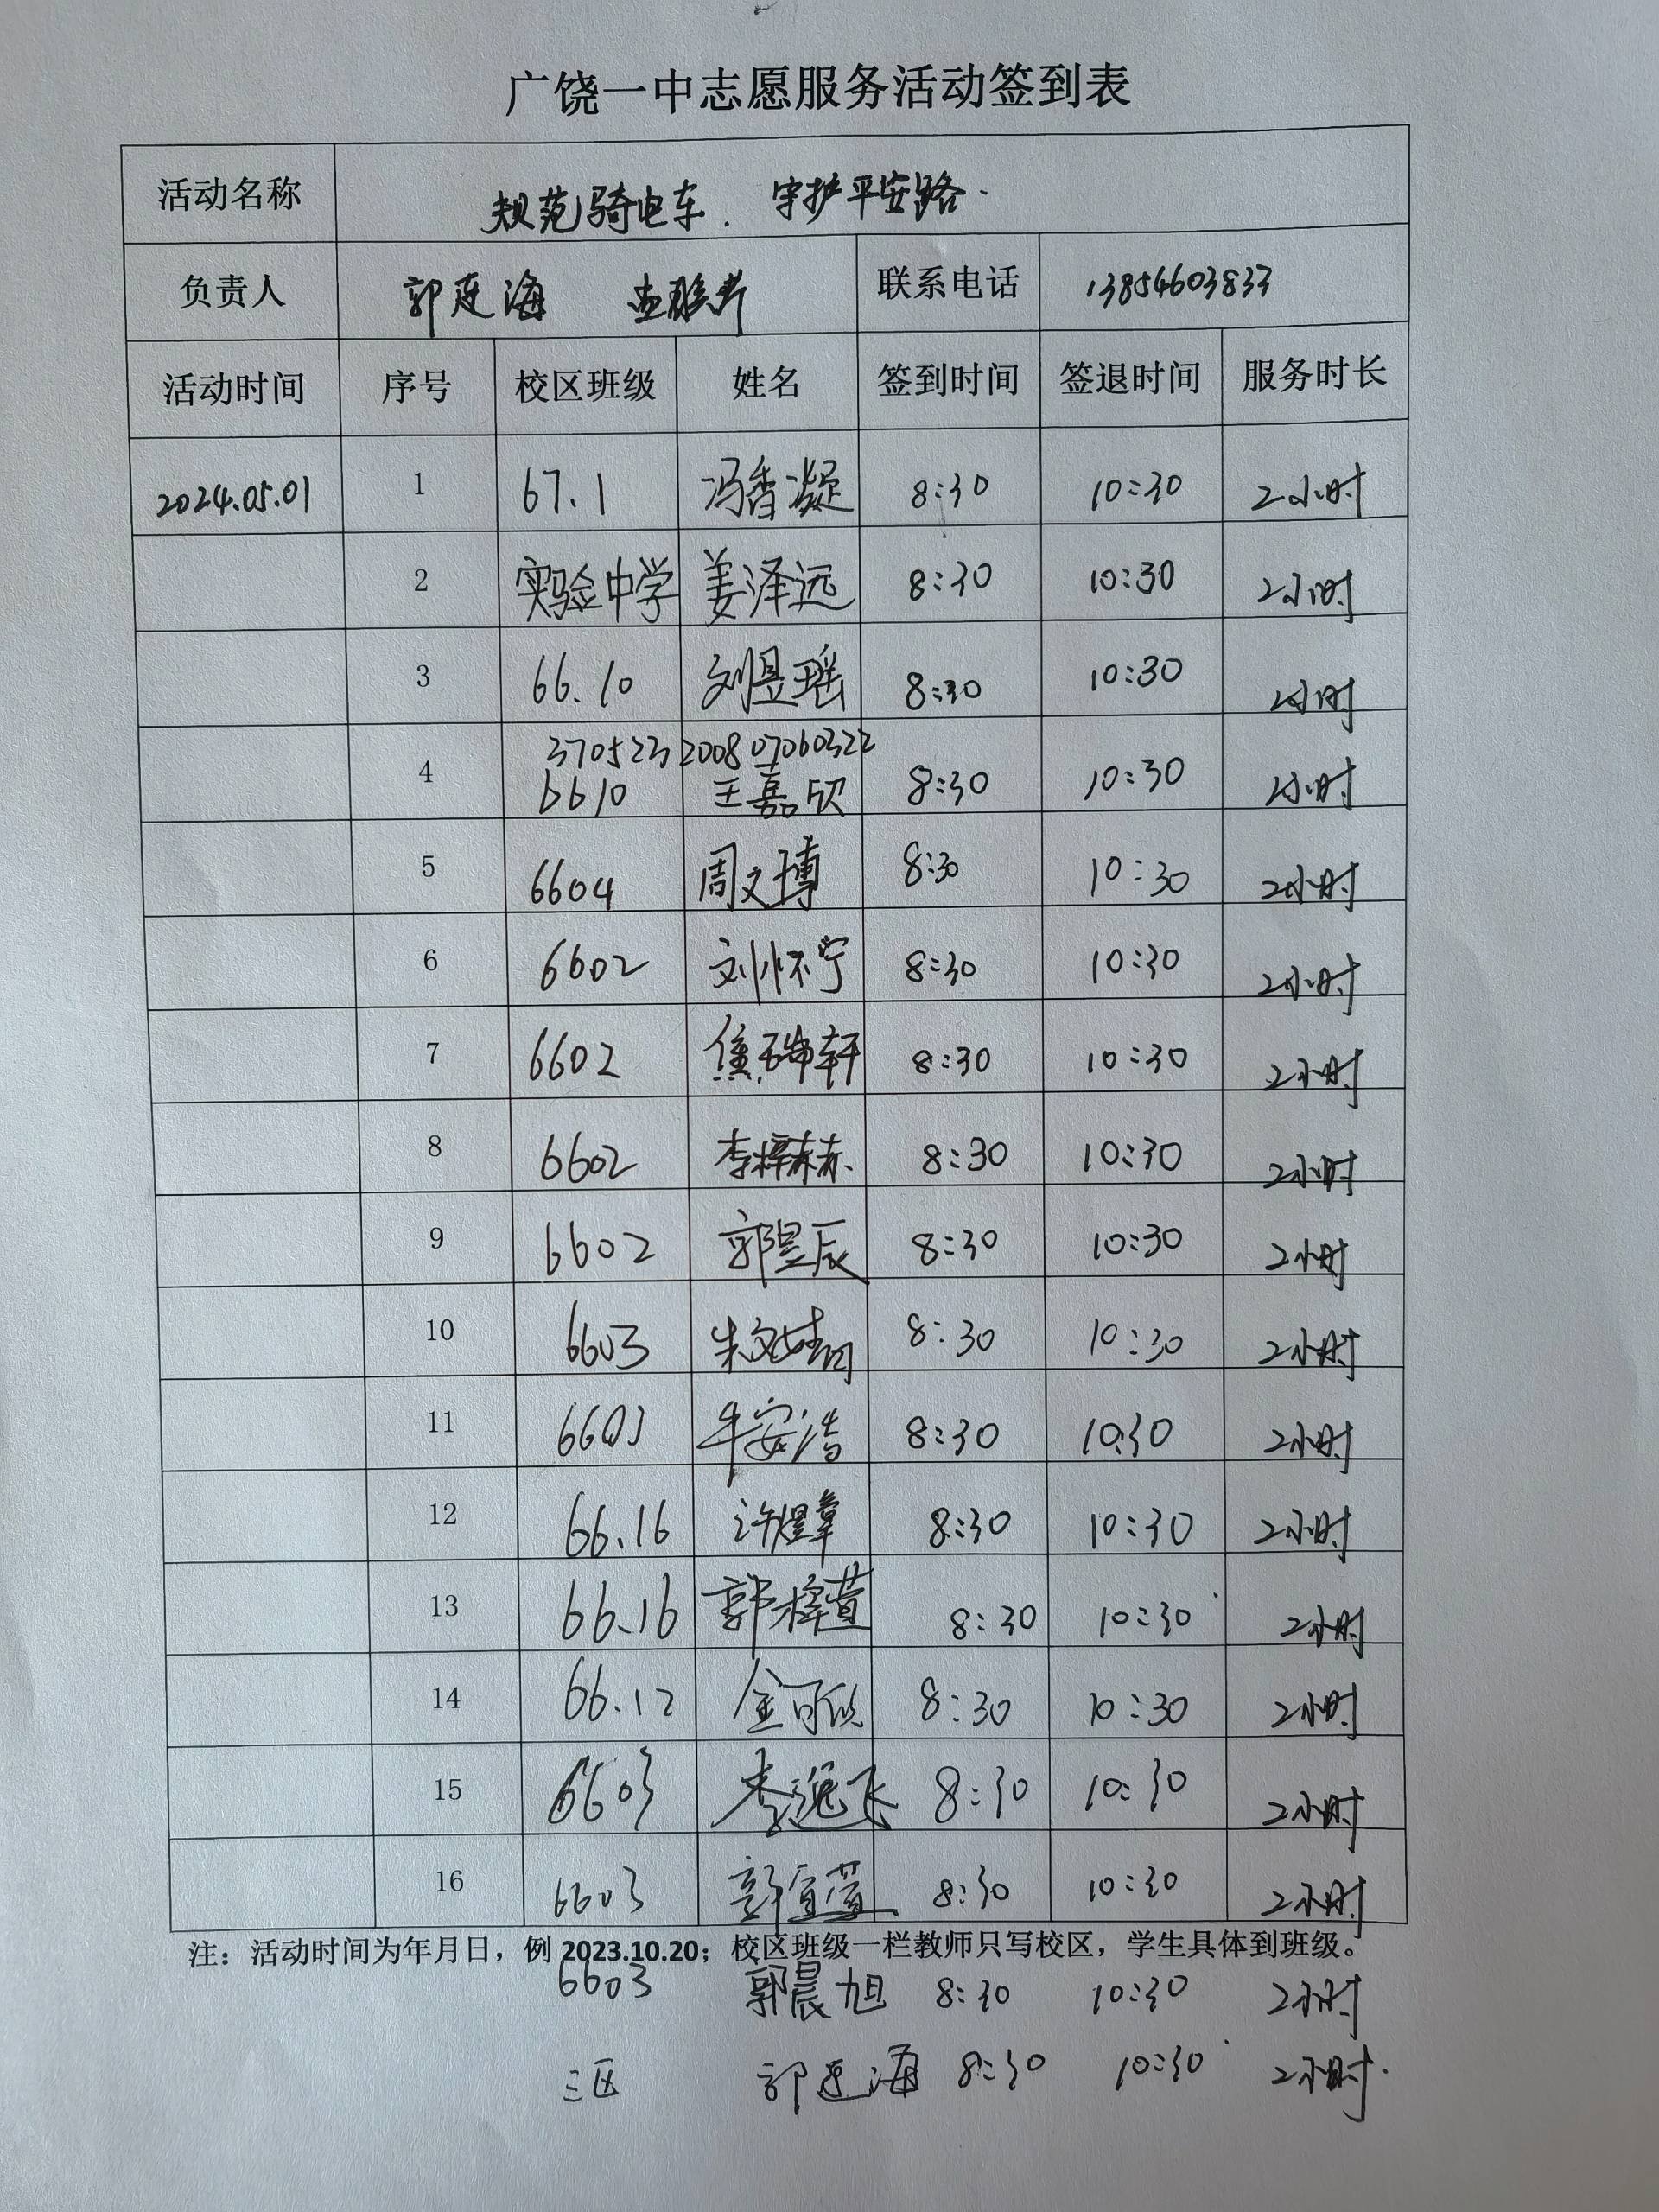 广饶一中志愿服务活动签到表
活动名称 规范骑电车.守护平安路.
负责人 郭连海 联系电话 13854603833
活动时间 序号 校区班级 姓名 签到时间 签退时间 服务时长
2024.05.01 1 67.1 冯香凝 8:30 10:30 2小时
2 实验中学 姜泽远 8:30 10:30 2小时
3 66.10 刘昱瑶 8:30 10:30 2小时
370523200807060322
4 6610 王嘉欣 8:30 10:30 2小时
5 6604 周文博 8:30 10:30 2小时
6 6602 刘怀宁 8:30 10:30 2小时
7 6602 焦瑞轩 8:30 10:30 2小时
8 6602 李梓赫 8:30 10:30 2小时
9 6602 郭昱辰 8:30 10:30 2小时
10 6603 朱文婧 8:30 10:30 2小时
11 6603 牛安浩 8:30 10:30 2小时
12 66.16 许煜章 8:30 10:30 2小时
13 66.16 郭梓萱 8:30 10:30 2小时
14 66.12 金可欣 8:30 10:30 2小时
15 6603 李逸飞 8:30 10:30 2小时
16 6603 郭宜萱 8:30 10:30 2小时
注：活动时间为年月日，例 2023.10.20；校区班级一栏教师只写校区，学生具体到班级。
6603 郭晨旭 8:30 10:30 2小时
三区 郭连海 8:30 10:30 2小时.